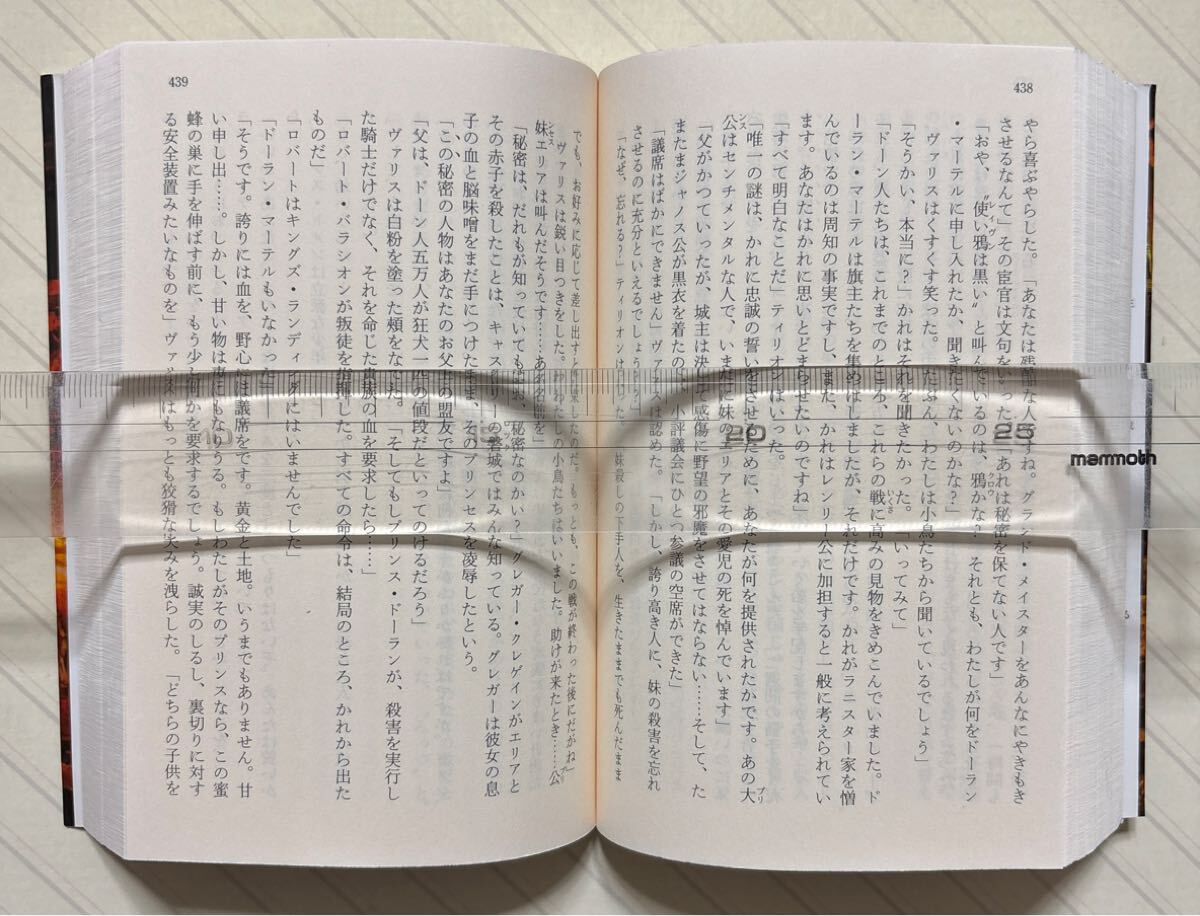 438
やら喜ぶやらした。「あなたは残酷な人ですね。グランド・メイスターをあんなにやきもき
させるなんて」その宦官は文句をいった「あれは秘密を保てない人です」
「おや、〝使い鴉は黒い〟と叫んでいるのは、鴉かな？ それとも、わたしが何をドーラン
・マーテルに申し入れたか、聞きたくないのかな？」
ヴァリスはくすくす笑った。「たぶん、わたしは小鳥たちから聞いているでしょう」
「そうかい、本当に？」かれはそれを聞きたかった。「いってみて」
「ドーン人たちは、これまでのところ、これらの戦に高みの見物をきめこんでいました。ド
ーラン・マーテルは旗主たちを集めはしましたが、それだけです。かれがラニスター家を憎
んでいるのは周知の事実ですし、また、かれはレンリー公に加担すると一般に考えられてい
ます。あなたはかれに思いとどまらせたいのですね」
「すべて明白なことだ」ティリオンはいった。
「唯一の謎は、かれに忠誠の誓いをさせるために、あなたが何を提供されたかです。あの大
公はセンチメンタルな人で、いまだに妹のエリアとその愛児の死を悼んでいます」
「父がかつていったが、城主は決して感傷に野望の邪魔をさせてはならない……そして、た
またまジャノス公が黒衣を着たので、小評議会にひとつ参議の空席ができた」
「議席はばかにできません」ヴァリスは認めた。「しかし、誇り高き人に、妹の殺害を忘れ
させるのに充分といえるでしょうか？」
「なぜ、忘れる？」ティリオンはいった。 妹殺しの下手人を、生きたままでも死んだまま
439
でも、お好みに応じて差し出すと約束したのだ。もっとも、この戦が終わった後にだがね」
ヴァリスは鋭い目つきをした。「わたしの小鳥たちはいいました。助けが来たとき……公
妹エリアは叫んだそうです……ある名前を」
「秘密は、だれもが知っていてもなお、秘密なのかい？」グレガー・クレゲインがエリアと
その赤子を殺したことは、キャスタリーの磐城ではみんな知っている。グレガーは彼女の息
子の血と脳味噌をまだ手につけたまま、そのプリンセスを凌辱したという。
「この秘密の人物はあなたのお父上の盟友ですよ」
「父は、ドーン人五万人が狂犬一匹の値段だといってのけるだろう」
ヴァリスは白粉を塗った頬をなでた。「そしてもしプリンス・ドーランが、殺害を実行し
た騎士だけでなく、それを命じた貴族の血を要求したら……」
「ロバート・バラシオンが叛徒を指揮した。すべての命令は、結局のところ、かれから出た
ものだ」
「ロバートはキングズ・ランディングにはいませんでした」
「ドーラン・マーテルもいなかった」
「そうです。誇りには血を、野心には議席をです。黄金と土地。いうまでもありません。甘
い申し出……。しかし、甘い物は毒にもなりうる。もしわたしがそのプリンスなら、この蜜
蜂の巣に手を伸ばす前に、もう少し何かを要求するでしょう。誠実のしるし、裏切りに対す
る安全装置みたいなものを」ヴァリスはもっとも狡猾な笑みを洩らした。「どちらの子供を
10
15
20
25
mammoth